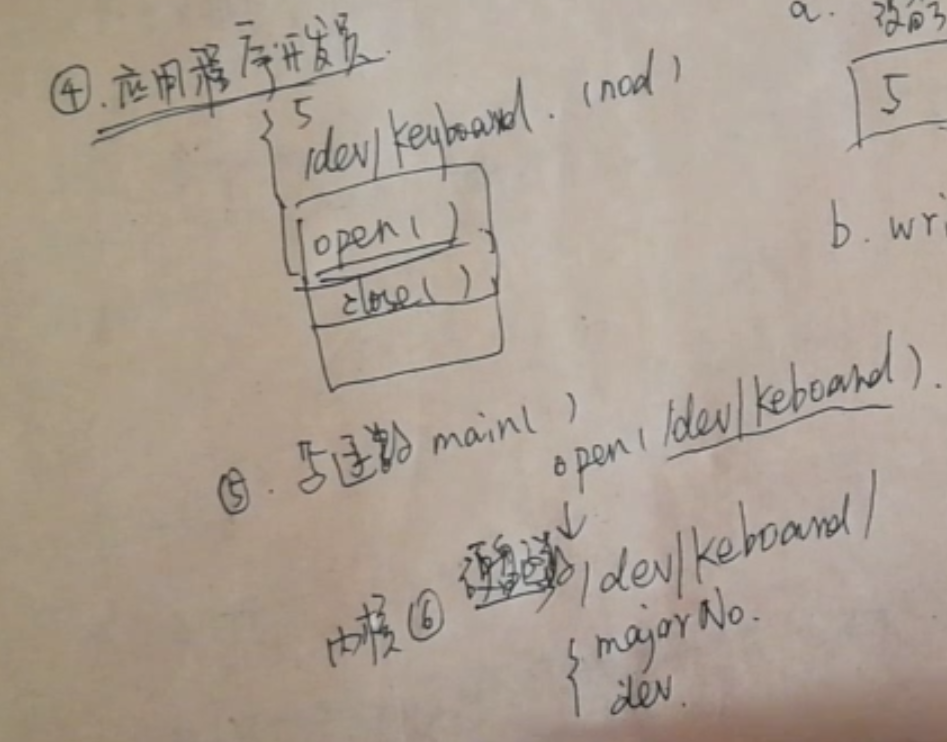 ④. 应用程序开发员.
5
/dev/keyboard. (nod)
open( )
close( )
⑤. 写函数 main( )
open( /dev/keboard ).
内核⑥ /dev/keboard/
majorNo.
dev.
a. 设
5
b. wri